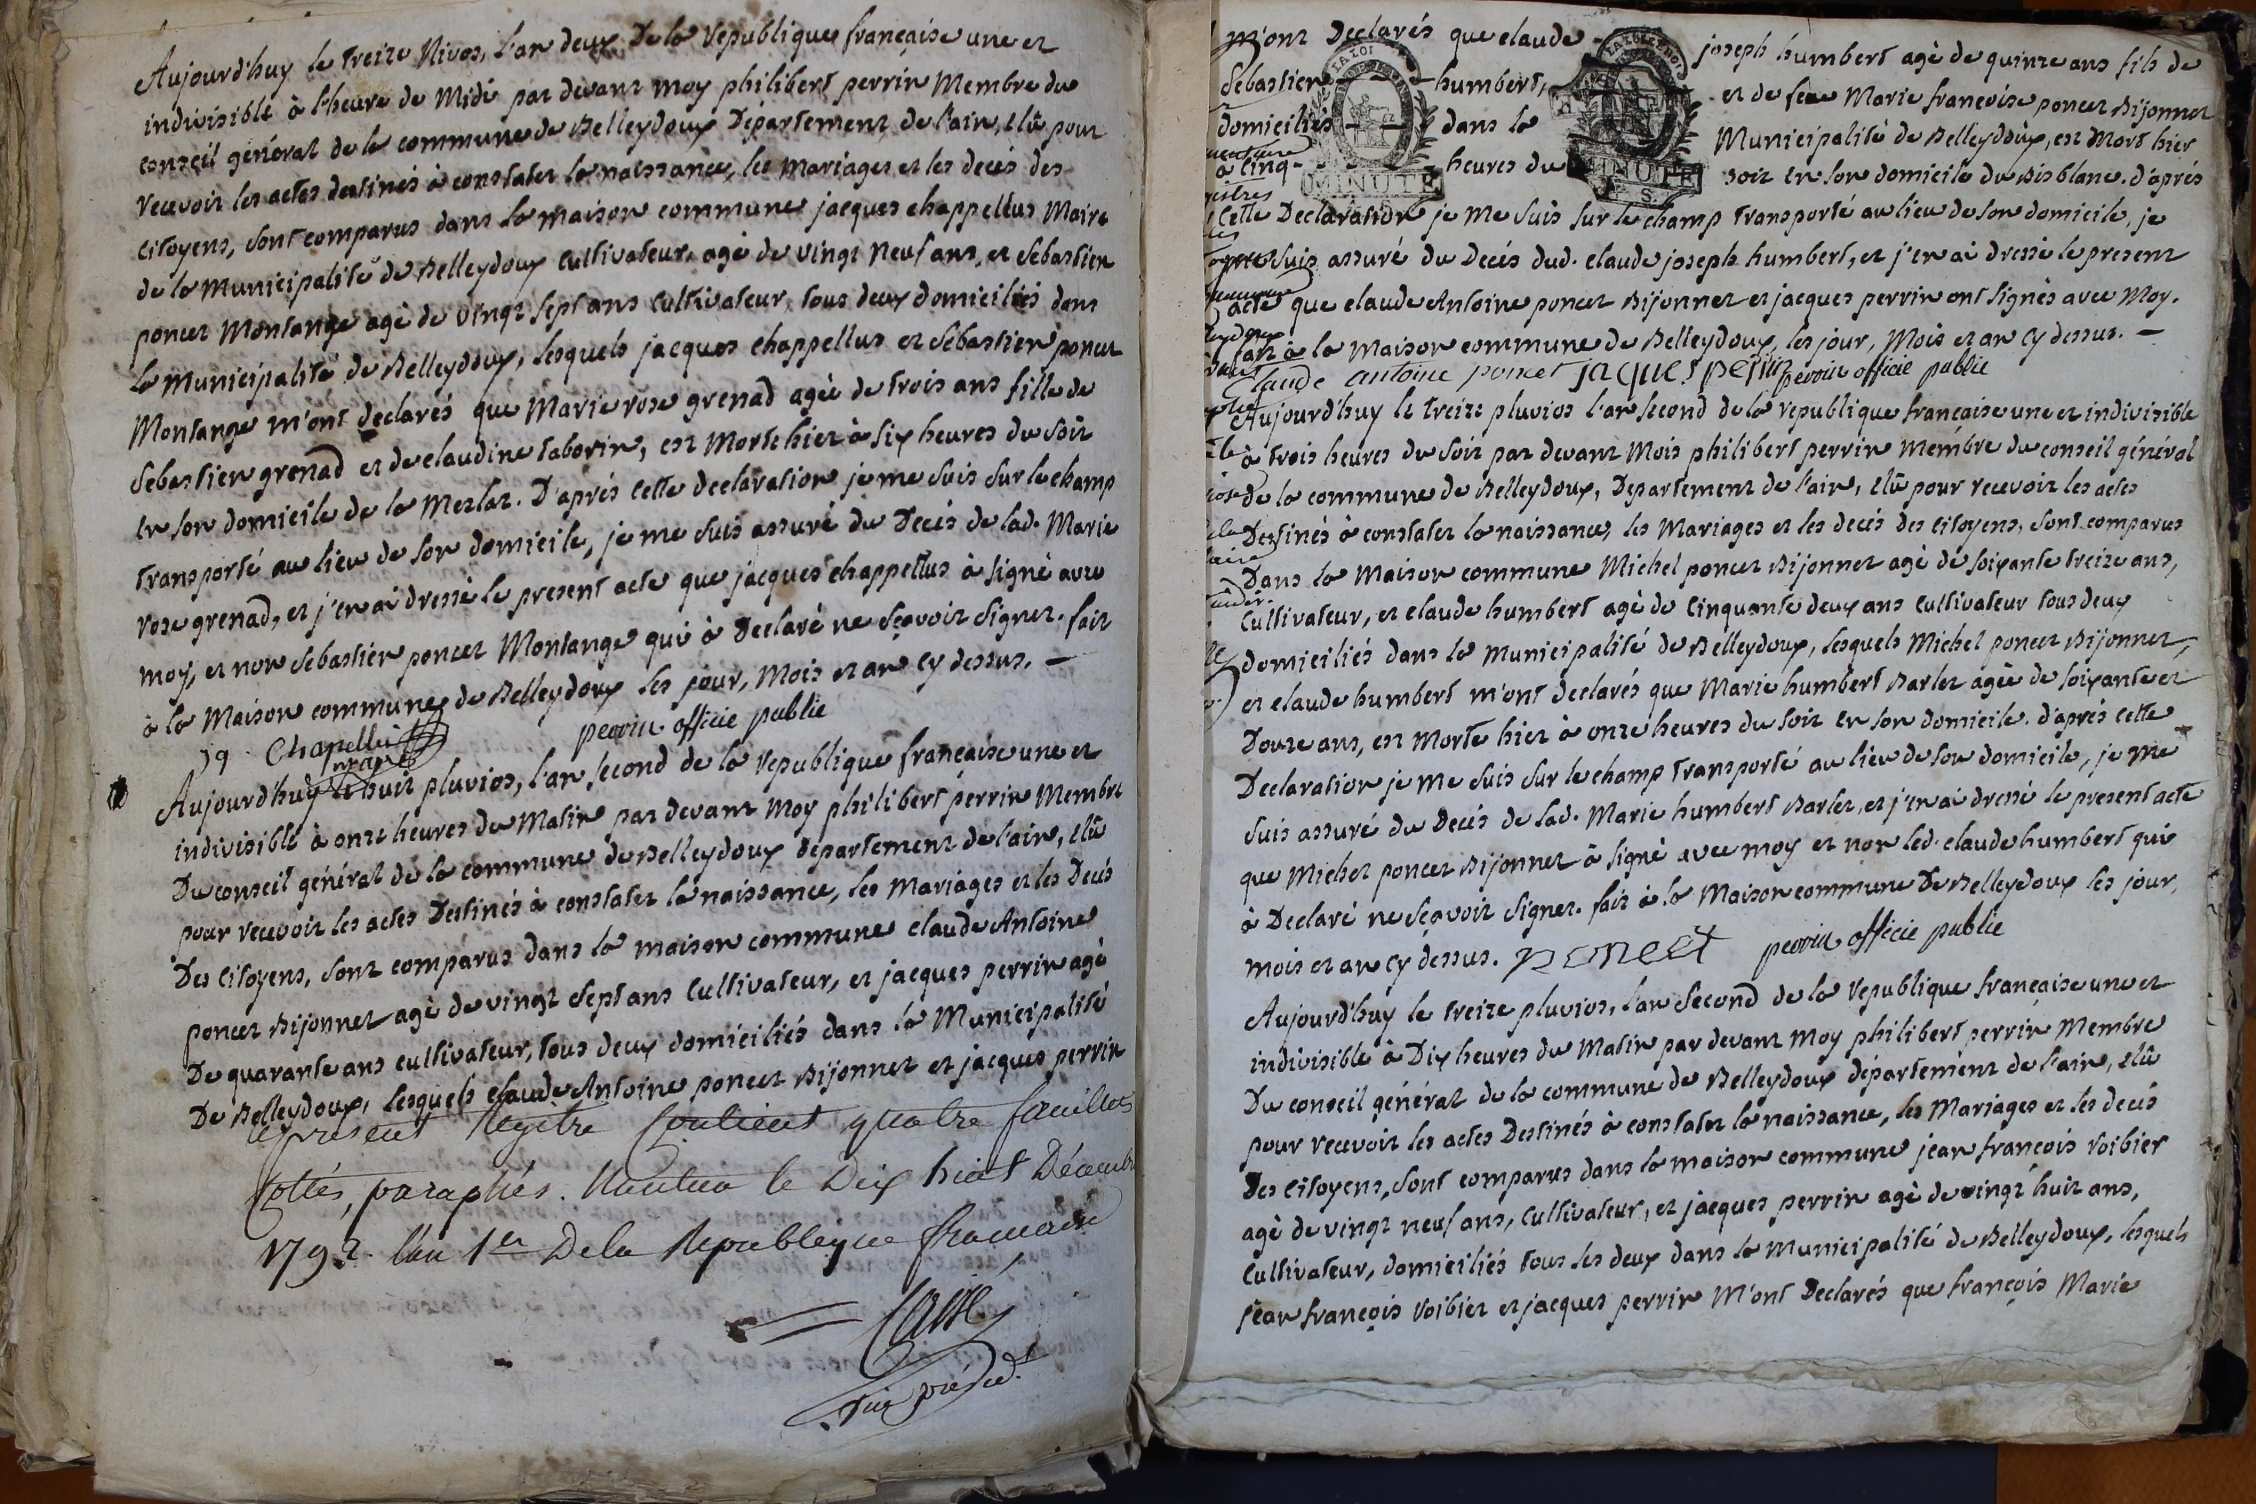 Aujourd'huy le treize Nivos, l'an deux De la republique française une et
indivisible à l'heure de Midi par devant moy philibert perrin Membre du
conseil général de la commune de Belleydoux Département de l'ain, elû pour
recevoir les actes destinés à constater la naissance, les mariages et les decés des
citoyens, sont comparus dans la maison commune jacques chappellus Maire
de la Municipalité de Belleydoux cultivateur, agé de vingt neuf ans, et Sebastien
poncet Montange agé de vingt sept ans cultivateur, tous deux domiciliés dans
la Municipalité de Belleydoux, lesquels jacques chappellus et Sebastien poncet
Montange m'ont declarés que Marie rose grenad agée de trois ans fille de
Sebastien grenad et de claudine taborin, est Morte hier à six heures du soir
en son domicile de la Merlat. D'aprés cette declaration je me suis sur le champ
transporté au lieu de son domicile, je me suis assuré du Decés de lad. Marie
rose grenad, et j'en ai dressé le present acte que jacques chappellus à signé avec
moy, et non Sebastien poncet Montange qui à Declaré ne sçavoir signer. fait
à la Maison commune de Belleydoux les jour, Mois et an cy dessus. —
Jq. Chapellu maire perrin officie public
Aujourd'huy le huit pluvios, l'an second de la republique française une et
indivisible à onze heures du Matin par devant Moy philibert perrin Membre
Du conseil général de la commune de Belleydoux departement de l'ain, elû
pour recevoir les actes Destinés à constater la naissance, les Mariages et les Decés
Des citoyens, sont comparus dans la maison commune claude Antoine
poncet Bijonnet agé de vingt sept ans cultivateur, et jacques perrin agé
De quarante ans cultivateur, tous deux domiciliés dans la Municipalité
De Belleydoux, lesquels claude Antoine poncet Bijonnet et jacques perrin
Le présent Regitre Contient quatre feuillets
Cottés, paraphés. Nantua le Dix huit Décembre
1792. l'an 1er De la Republique francaise
vice présid.t
m'ont Declarés que claude joseph humbert agé de quinze ans fils de
Sebastien — humbert, et de feue Marie françoise poncet Bijonnet
domiciliés — — dans la Municipalité de Belleydoux, est Mort hier
à cinq - heures du soir en son domicile du Bisblanc. d'aprés
MINUTE
MINUTE
cette Declaration je me suis sur le champ transporté au lieu de son domicile, je
me suis assuré du Decés dud. claude joseph humbert, et j'en ai dressé le present
acte que claude Antoine poncet Bijonnet et jacques perrin ont signés avec Moy.
fait à la Maison commune de Belleydoux, les jour, Mois et an cy dessus. —
Claude antoine poncet jaques perin perrin officie public
Aujourd'huy le treize pluvios l'an second de la republique française une et indivisible
à trois heures du soir par devant Mois philibert perrin Membre du conseil général
de la commune de Belleydoux, Departement de l'ain, elû pour recevoir les actes
Destinés à constater la naissance, les Mariages et les decés des citoyens, sont comparus
Dans la Maison commune Michel poncet Bijonnet agé de soixante treize ans,
cultivateur, et claude humbert agé de cinquante deux ans cultivateur tous deux
domiciliés dans la Municipalité de Belleydoux, lesquels Michel poncet Bijonnet,
et claude humbert m'ont declarés que Marie humbert Barlet agée de soixante et
Douze ans, est Morte hier à onze heures du soir en son domicile. d'aprés cette
Declaration je me suis sur le champ transporté au lieu de son domicile, je me
suis assuré du Decés de lad. Marie humbert Barlet, et j'en ai dressé le present acte
que Michel poncet Bijonnet à signé avec moy et non led. claude humbert qui
à Declaré ne sçavoir signer. fait à la Maison commune De Belleydoux les jour,
mois et an cy dessus. poncet perrin officie public
Aujourd'huy le treize pluvios, l'an second de la republique française une et
indivisible à Dix heures du Matin par devant moy philibert perrin Membre
Du conseil général de la commune de Belleydoux département de l'ain, elû
pour recevoir les actes Destinés à constater la naissance, les Mariages et les decés
des citoyens, sont comparus dans la maison commune jean françois Voibier
agé de vingt neuf ans, cultivateur, et jacques perrin agé de vingt huit ans,
cultivateur, domiciliés tous les deux dans la Municipalité de Belleydoux, lesquels
jean françois Voibier et jacques perrin M'ont Declarés que françois Marie